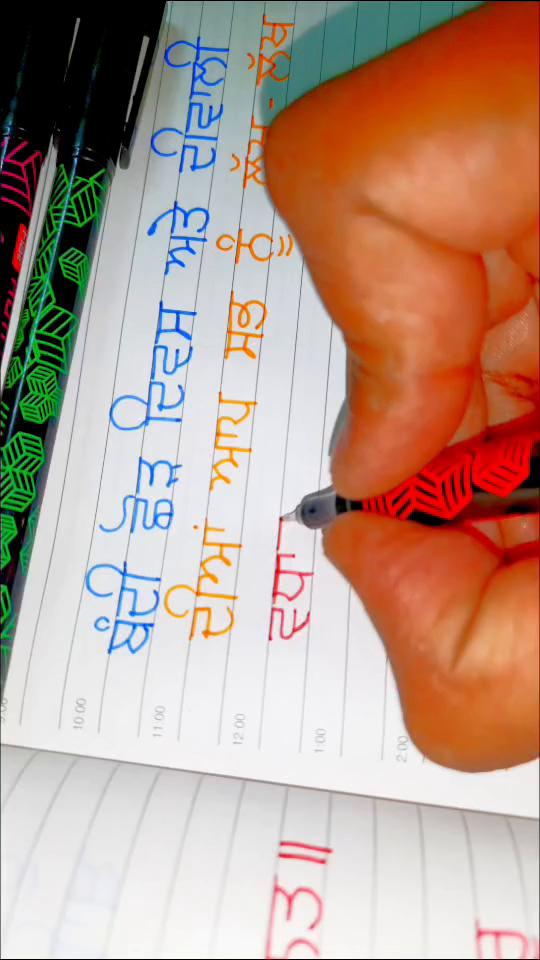 10:00
ਬੰਦੀ ਛੋੜ ਦਿਵਸ ਅਤੇ ਦੀਵਾਲੀ
11:00
ਦੀਆਂ ਆਪ ਸਭ ਨੂੰ ਲੱਖ - ਲੱਖ
12:00
ਵਧਾ
1:00
2:00